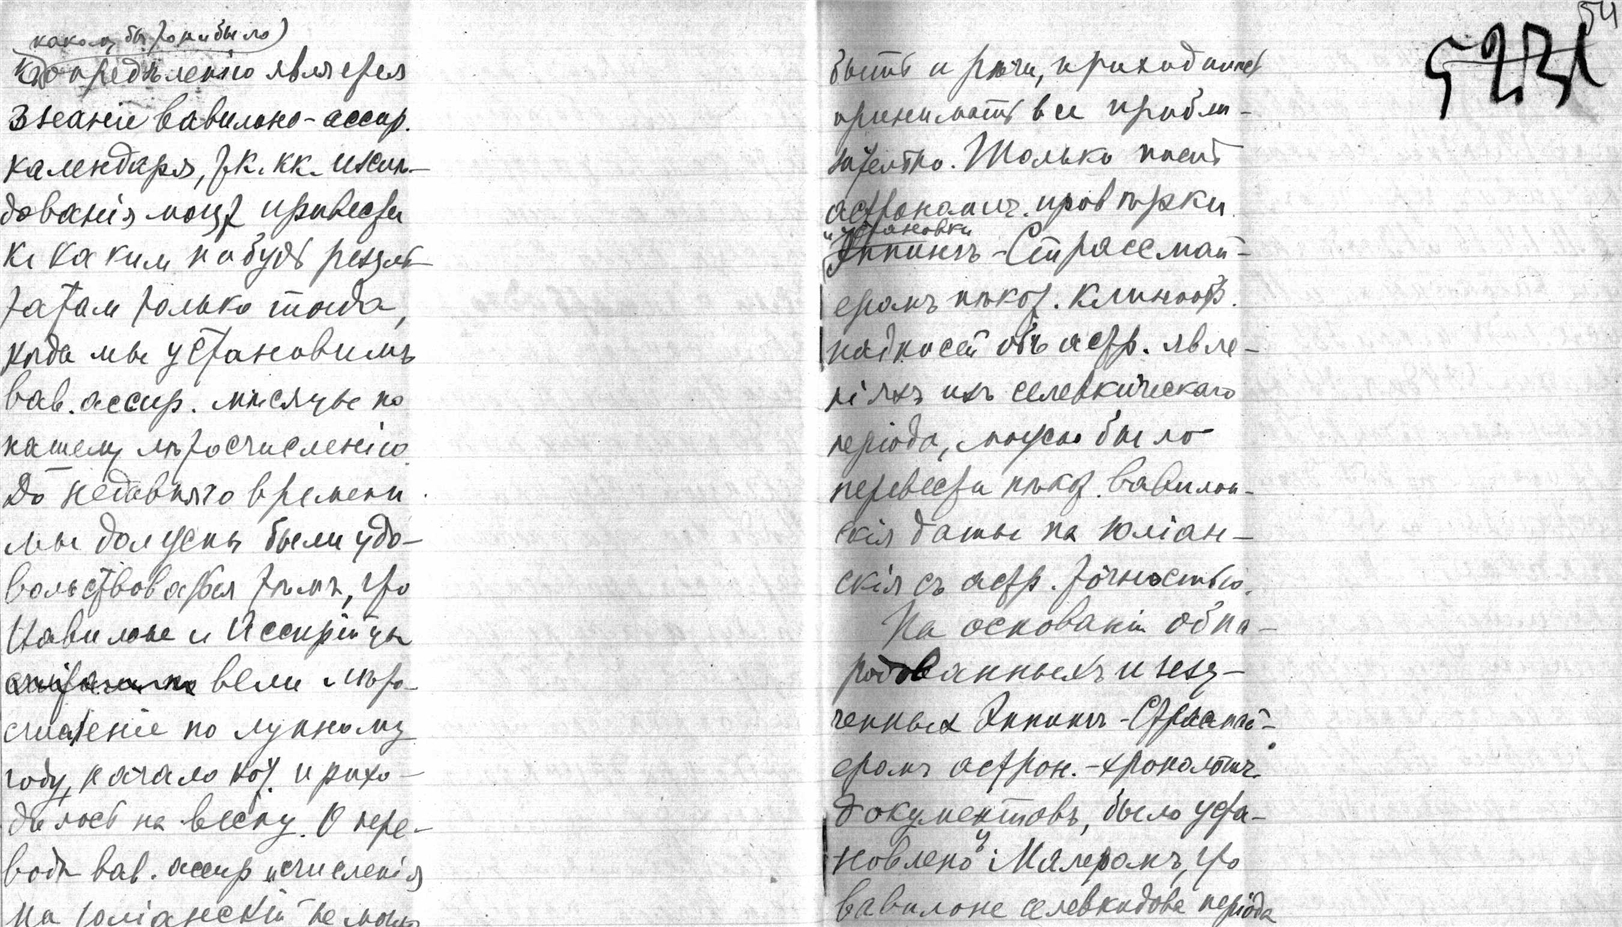 какому бы то ни было)
Къ опредѣленію является
знаніе вавилоно-ассир.
календаря, т.к. кк. изслѣ-
дованія могут привести
къ каким нибудь резуль-
татам только тогда,
когда мы установимъ
вав. ассир. мѣсяцы по
нашему лѣтосчисленію.
До недавняго времени
мы должны были удо-
вольствоваться тѣмъ, что
Вавилоне и Ассирійцы
вели лѣто-
счисленіе по лунному
году, начало кот. прихо-
дилось на весну. О пере-
водѣ вав. ассир. исчисленія
на юліанскій не могло
5231
54
быть и рѣчи, приходилось
принимать все прибли-
зительно. Только послѣ
астрономич. провѣрки
и установки
Эппингъ-Страссмай-
еромъ нѣкот. клинообр.
надписей объ астр. явле-
ніяхъ изъ селевкическаго
періода, можно было
перевести нѣкот. вавилон-
скія даты на юліан-
скія съ астр. точностью.
На основаніи обна-
родованныхъ и изу-
ченных Эппингъ-Страсмай-
еромъ астрон.-хронологич.
документовъ, было уста-
новлено Малеромъ, что
вавилоне селевкидова періода